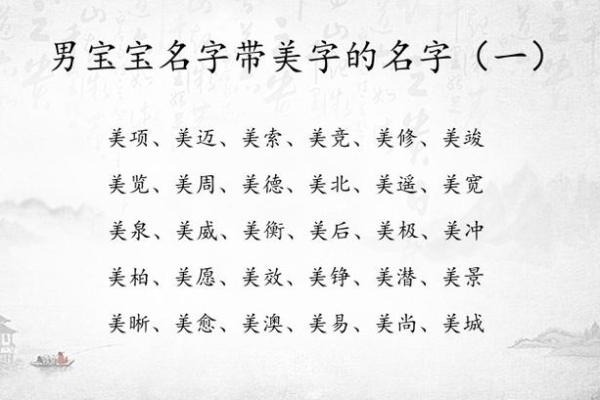 男宝宝名字带美字的名字（一）
美项、美迈、美索、美竞、美修、美竣
美览、美周、美德、美北、美遥、美宽
美泉、美威、美衡、美后、美极、美冲
美柏、美愿、美效、美铮、美潜、美景
美晰、美愈、美澳、美易、美尚、美城